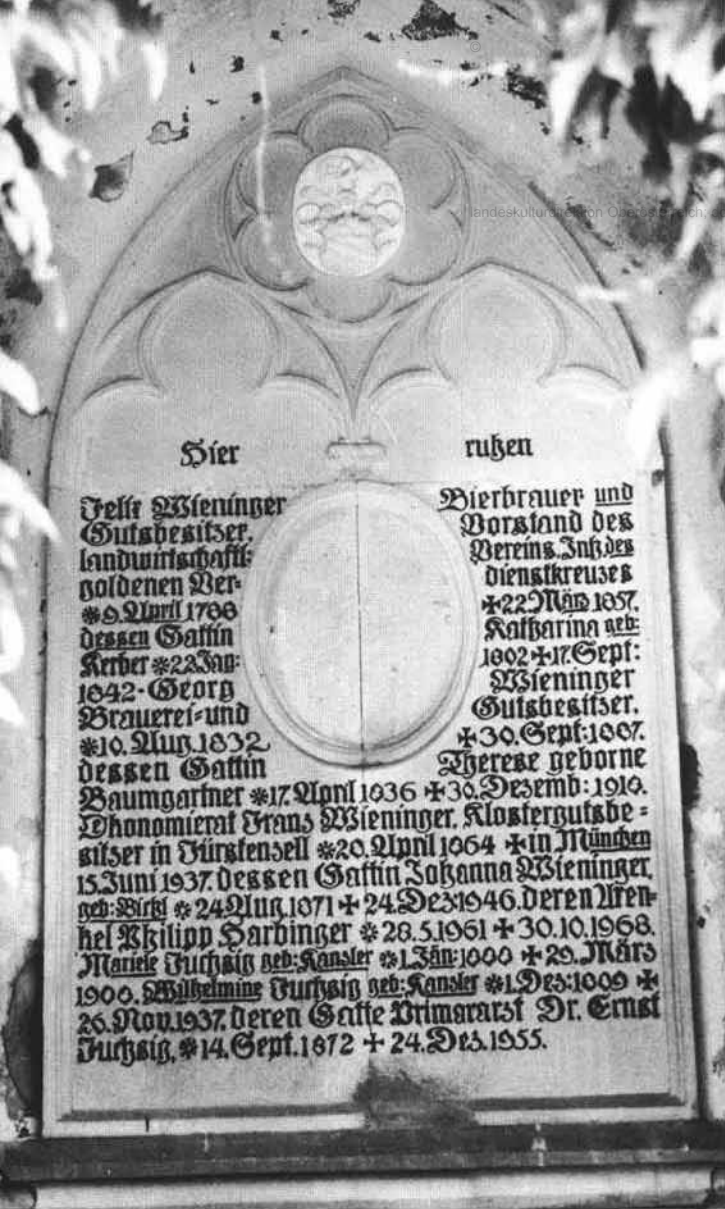 Landeskulturdirektion Oberösterreich;
Hier ruhen
Felix Wieninger Bierbrauer und
Gutsbesitzer, Vorstand des
landwirtschaftl: Vereins, Inh. des
goldenen Ver- dienstkreuzes
✻ 9. April 1788 ✚ 22 März 1857,
dessen Gattin Katharina geb:
Kerber ✻ 22 Jan: 1802 ✚ 17. Sept:
1842 · Georg Wieninger
Brauerei- und Gutsbesitzer.
✻ 10. Aug. 1832 ✚ 30. Sept: 1887.
dessen Gattin Therese geborne
Baumgartner ✻ 17. April 1836 ✚ 30. Dezemb: 1910.
Ökonomierat Franz Wieninger, Klostergutsbe=
sitzer in Fürstenzell ✻ 20. April 1864 ✚ in München
15. Juni 1937. dessen Gattin Johanna Wieninger,
geb: ✻ 24 Aug. 1871 ✚ 24. Dez: 1946. deren Uren-
kel Philipp Harbinger ✻ 28.5.1961 ✚ 30.10.1968.
Mariele Fuchsig geb: Kanzler ✻ 1. Jän: ✚ 29. März
Wilhelmine Fuchsig geb: Kanzler ✻ 1. Dez: ✚
26. Nov. 1937. deren Gatte Primararzt Dr. Ernst
Fuchsig, ✻ 14. Sept. 1872 ✚ 24. Dez. 1955.